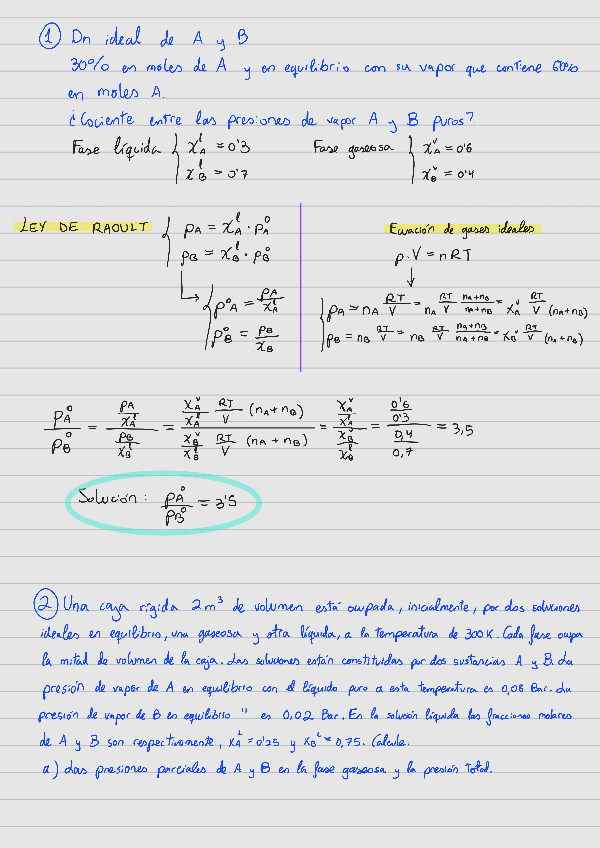 ① Dn ideal de A y B
30% en moles de A y en equilibrio con su vapor que contiene 60%
en moles A.
¿Cociente entre las presiones de vapor A y B puros?
Fase líquida { χ_A^l = 0'3
χ_B^l = 0'7
Fase gaseosa { χ_A^v = 0'6
χ_B^v = 0'4
LEY DE RAOULT { p_A = χ_A^l · p_A^0
p_B = χ_B^l · p_B^0
p_A^0 = p_A / χ_A^l
p_B^0 = p_B / χ_B
Ecuación de gases ideales
p·V = nRT
p_A = n_A RT/V = n_A RT/V (n_A+n_B)/(n_A+n_B) = χ_A^v RT/V (n_A+n_B)
p_B = n_B RT/V = n_B RT/V (n_A+n_B)/(n_A+n_B) = χ_B^v RT/V (n_A+n_B)
p_A^0 / p_B^0 = (p_A/χ_A^l) / (p_B/χ_B^l) = (χ_A^v/χ_A^l RT/V (n_A+n_B)) / (χ_B^v/χ_B^l RT/V (n_A+n_B)) = (χ_A^v/χ_A^l) / (χ_B^v/χ_B^l) = (0'6/0'3) / (0,4/0,7) = 3,5
Solución: p_A^0 / p_B^0 = 3'5
② Una caja rígida 2m³ de volumen está ocupada, inicialmente, por dos soluciones
ideales en equilibrio, una gaseosa y otra líquida, a la temperatura de 300K. Cada fase ocupa
la mitad de volumen de la caja. Las soluciones están constituidas por dos sustancias A y B. La
presión de vapor de A en equilibrio con el líquido puro a esta temperatura es 0,08 Bar. La
presión de vapor de B en equilibrio " es 0,02 Bar. En la solución líquida las fracciones molares
de A y B son respectivamente, x_A^L = 0'25 y x_B^L = 0,75. Calcule:
a) Las presiones parciales de A y B en la fase gaseosa y la presión total.